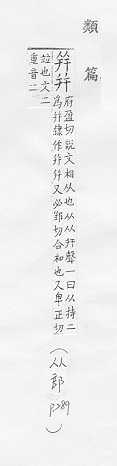 類篇
幷并
府盈切說文相从也从从幵聲一曰从持二
為幷隸作并幷又必郢切合和也又卑正切
竝也文二
重音二
(从部 P289)